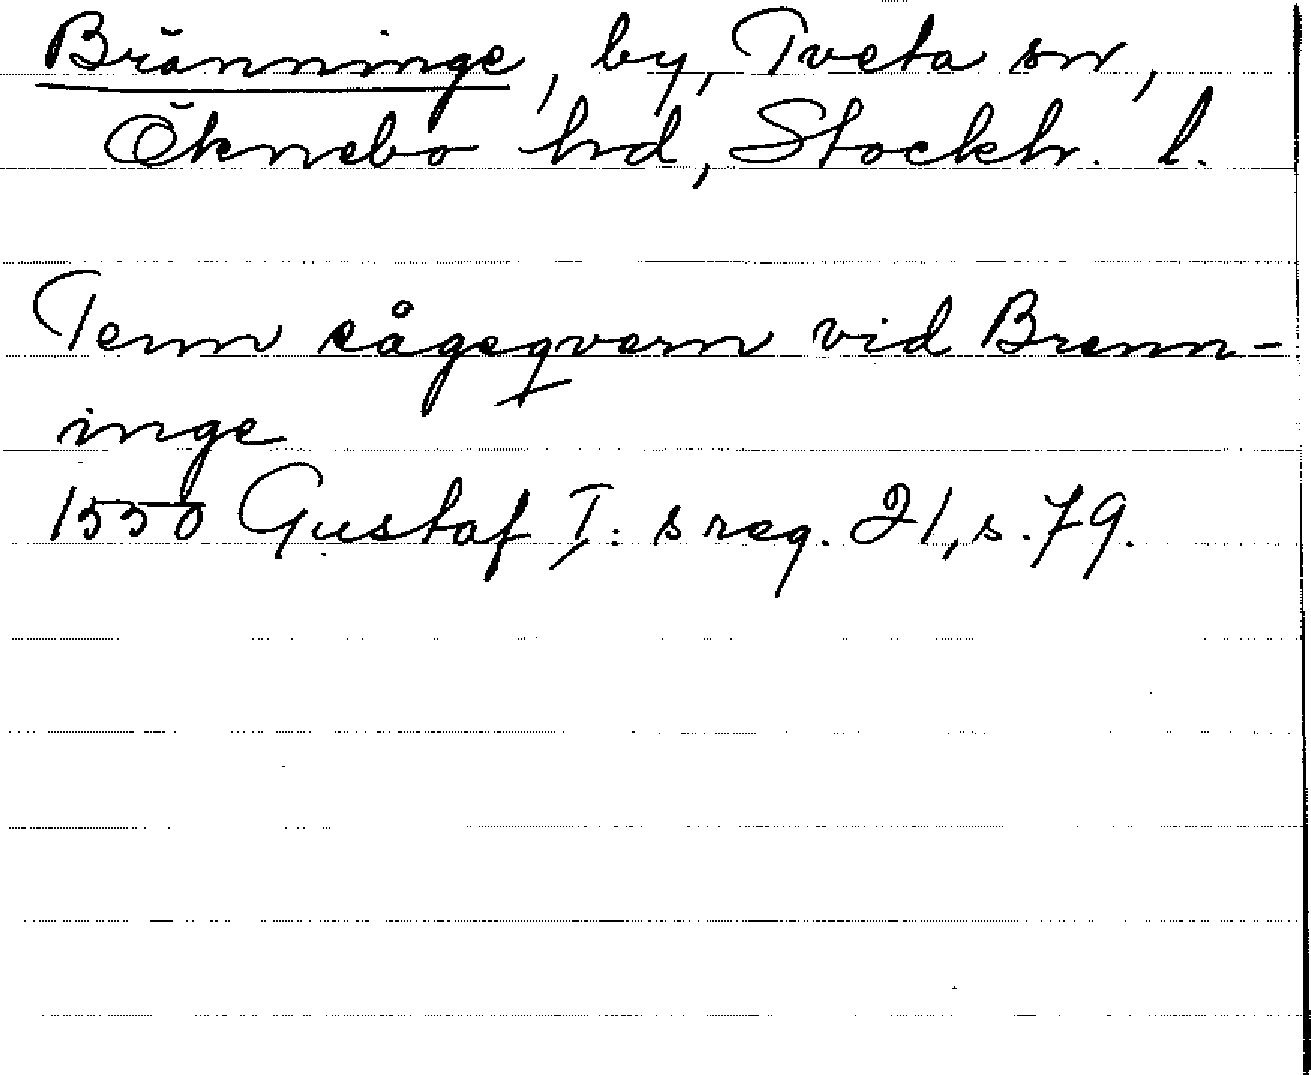 Bränninge, by, Tveta sn,
Öknebo hd, Stockh. l.
Tenn sågeqvern vid Brenn-
inge
1550 Gustaf I:s reg. 21, s. 79.